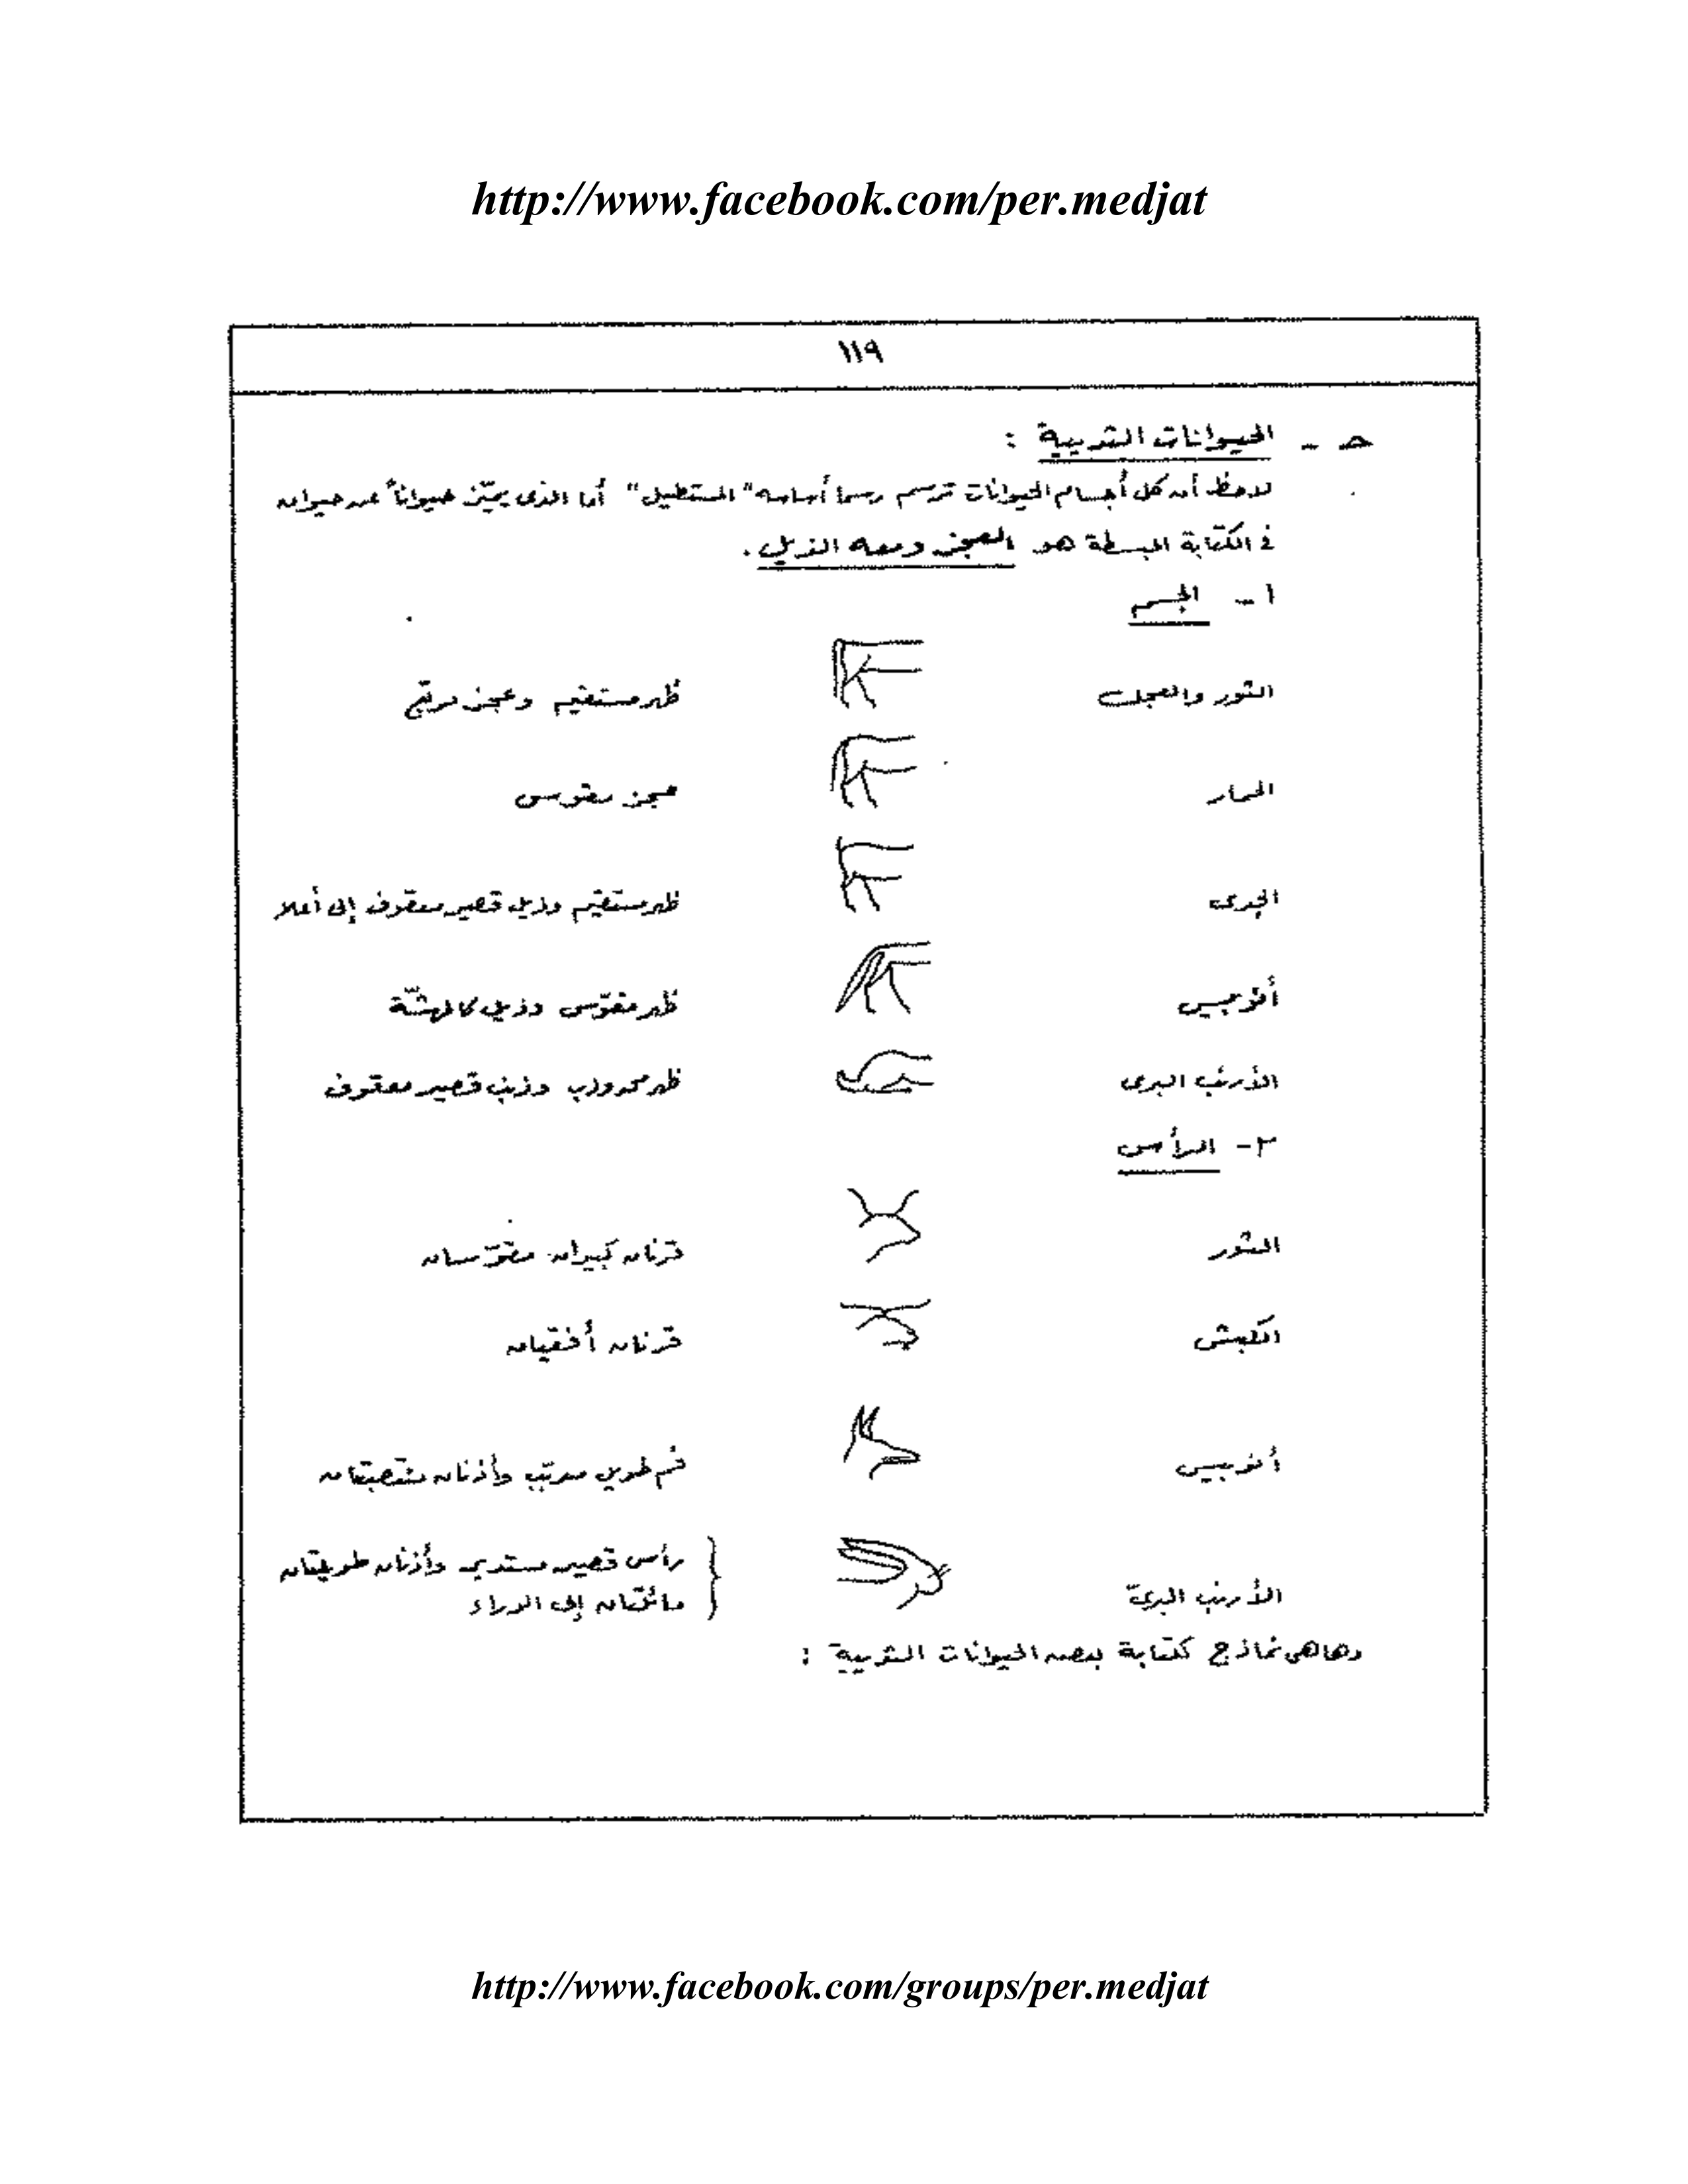 http://www.facebook.com/per.medjat
١١٩
حـ - الحيوانات الثديية :
لاحظ أن كل أجسام الحيوانات ترسم رسما أساسه "المستطيل" أما الذى يميّز حيواناً عن حيوان
فى الكتابة المبسطة هو العجز ومعه الذيل .
١ - الجسم
الثور والعجل ظهر مستقيم وعجز مربّع
الحمار عجز مقوس
الجدى ظهر مستقيم وذيل قصير معقوف إلى أعلا
أنوبيس ظهر مقوّس وذيل كالمهشّة
الأرنب البرى ظهر محدودب وذنب قصير معقوف
٢ - الرأس
الثور قرنان كبيران مقوّسان
الكبش قرنان أفقيان
أنوبيس فم طويل مدبّب وأذنان منتصبتان
الأرنب البرىّ رأس قصير مستدير وأذنان طويلتان
مائلتان إلى الوراء
وهاهى نماذج لكتابة بعض الحيوانات الثديية :
http://www.facebook.com/groups/per.medjat